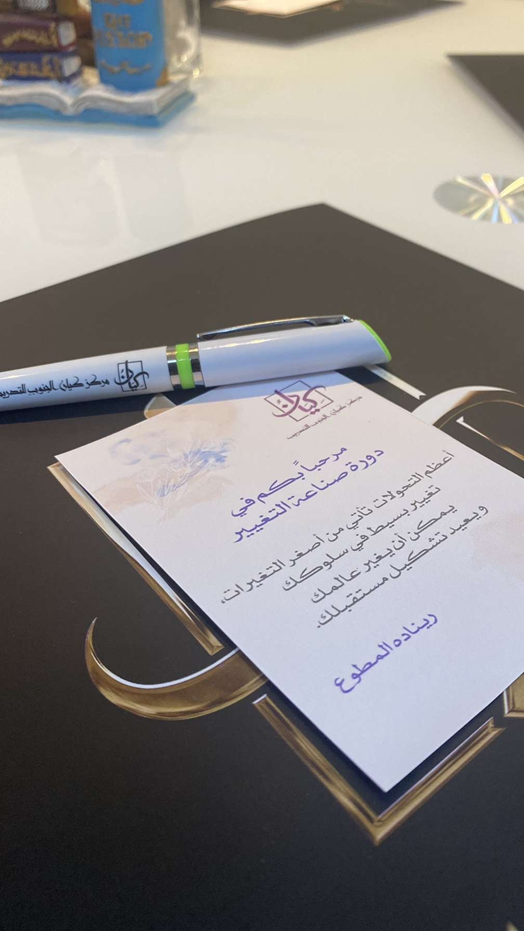 كيان
مركز كيان الجنوب للتدريب
كيان
مركز كيان الجنوب للتدريب
مرحباً بكم في
دورة صناعة التغيير
أعظم التحولات تأتي من أصغر التغيرات،
تغيير بسيط في سلوكك
يمكن أن يغير عالمك
ويعيد تشكيل مستقبلك.
ريناده المطوع